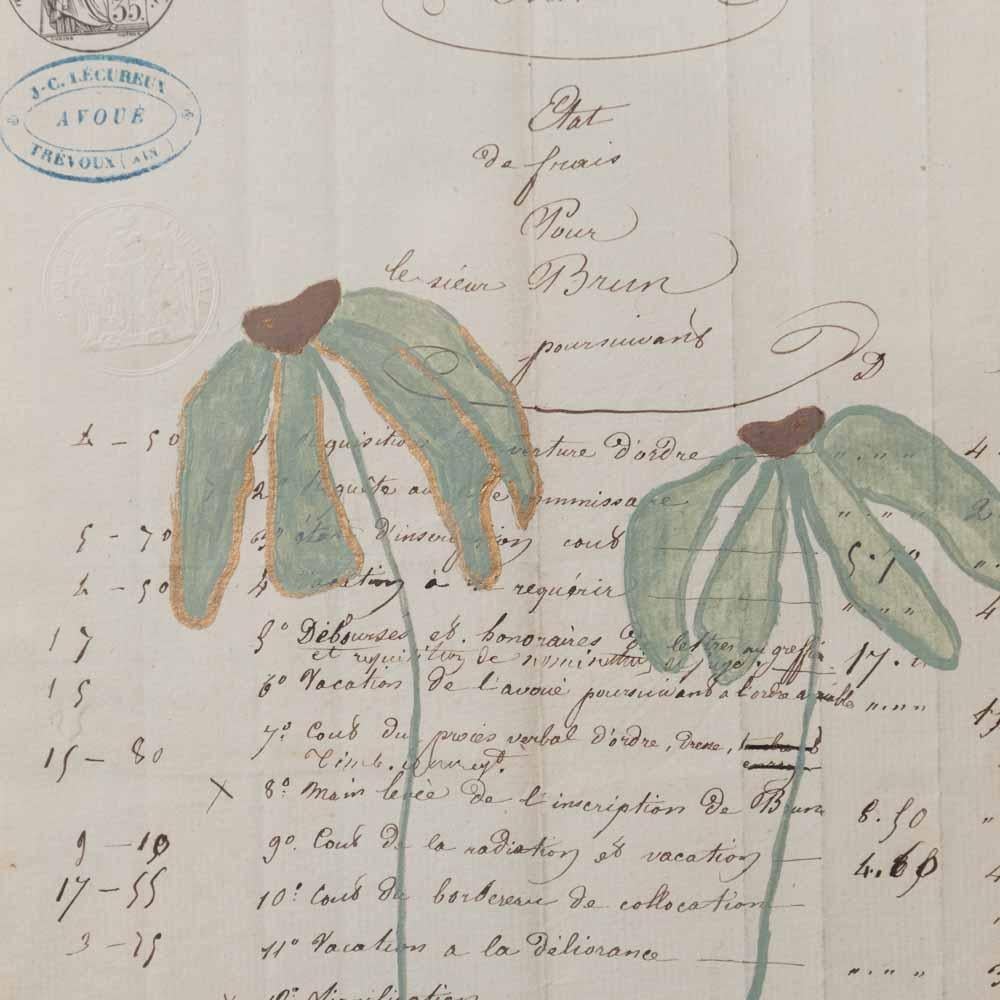 35
J-C. LÉCUREUX
AVOUÉ
TRÉVOUX (AIN)
Etat
de frais
Pour
le sieur Brun
poursuivant
D
4 - 50 1° Réquisition ouverture d'ordre " . " " 4
2° Requête au commissaire " . " " 2
5 - 70 3° état d'inscription cout 5.70
4 - 50 4° Vacation à requérir " . " " 4
17 5° Débourses et honoraires lettres au greffe 17. "
et réquisition de
15 6° Vacation de l'avoué poursuivant à l'ordre amiable " . " " 15
7° Cout du procès verbal d'ordre,
15 - 80
X 8° Main levée de l'inscription de Brun 8.50 "
9 - 10 9° Cout de la radiation et vacation 4.60 4
17 - 55 10° Cout du bordereau de collocation
3 - 75 11° Vacation a la déliorance " . " "